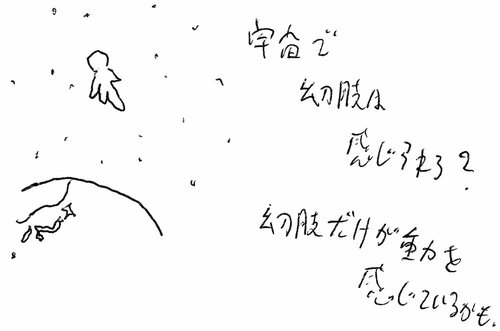 宇宙で
幻肢は
感じられる?
幻肢だけが重力を
感じているかも.